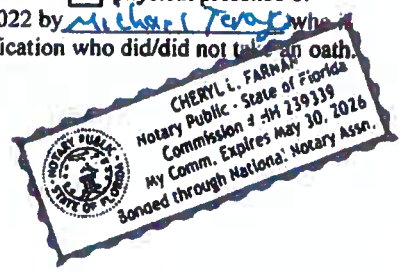 physical presence of
2022 by Michael who is
ication who did/did not take an oath.
CHERYL L. FARNAN
Notary Public - State of Florida
Commission # HH 239339
My Comm. Expires May 30, 2026
Bonded through National Notary Assn.
NOTARY PUBLIC
STATE OF FLORIDA